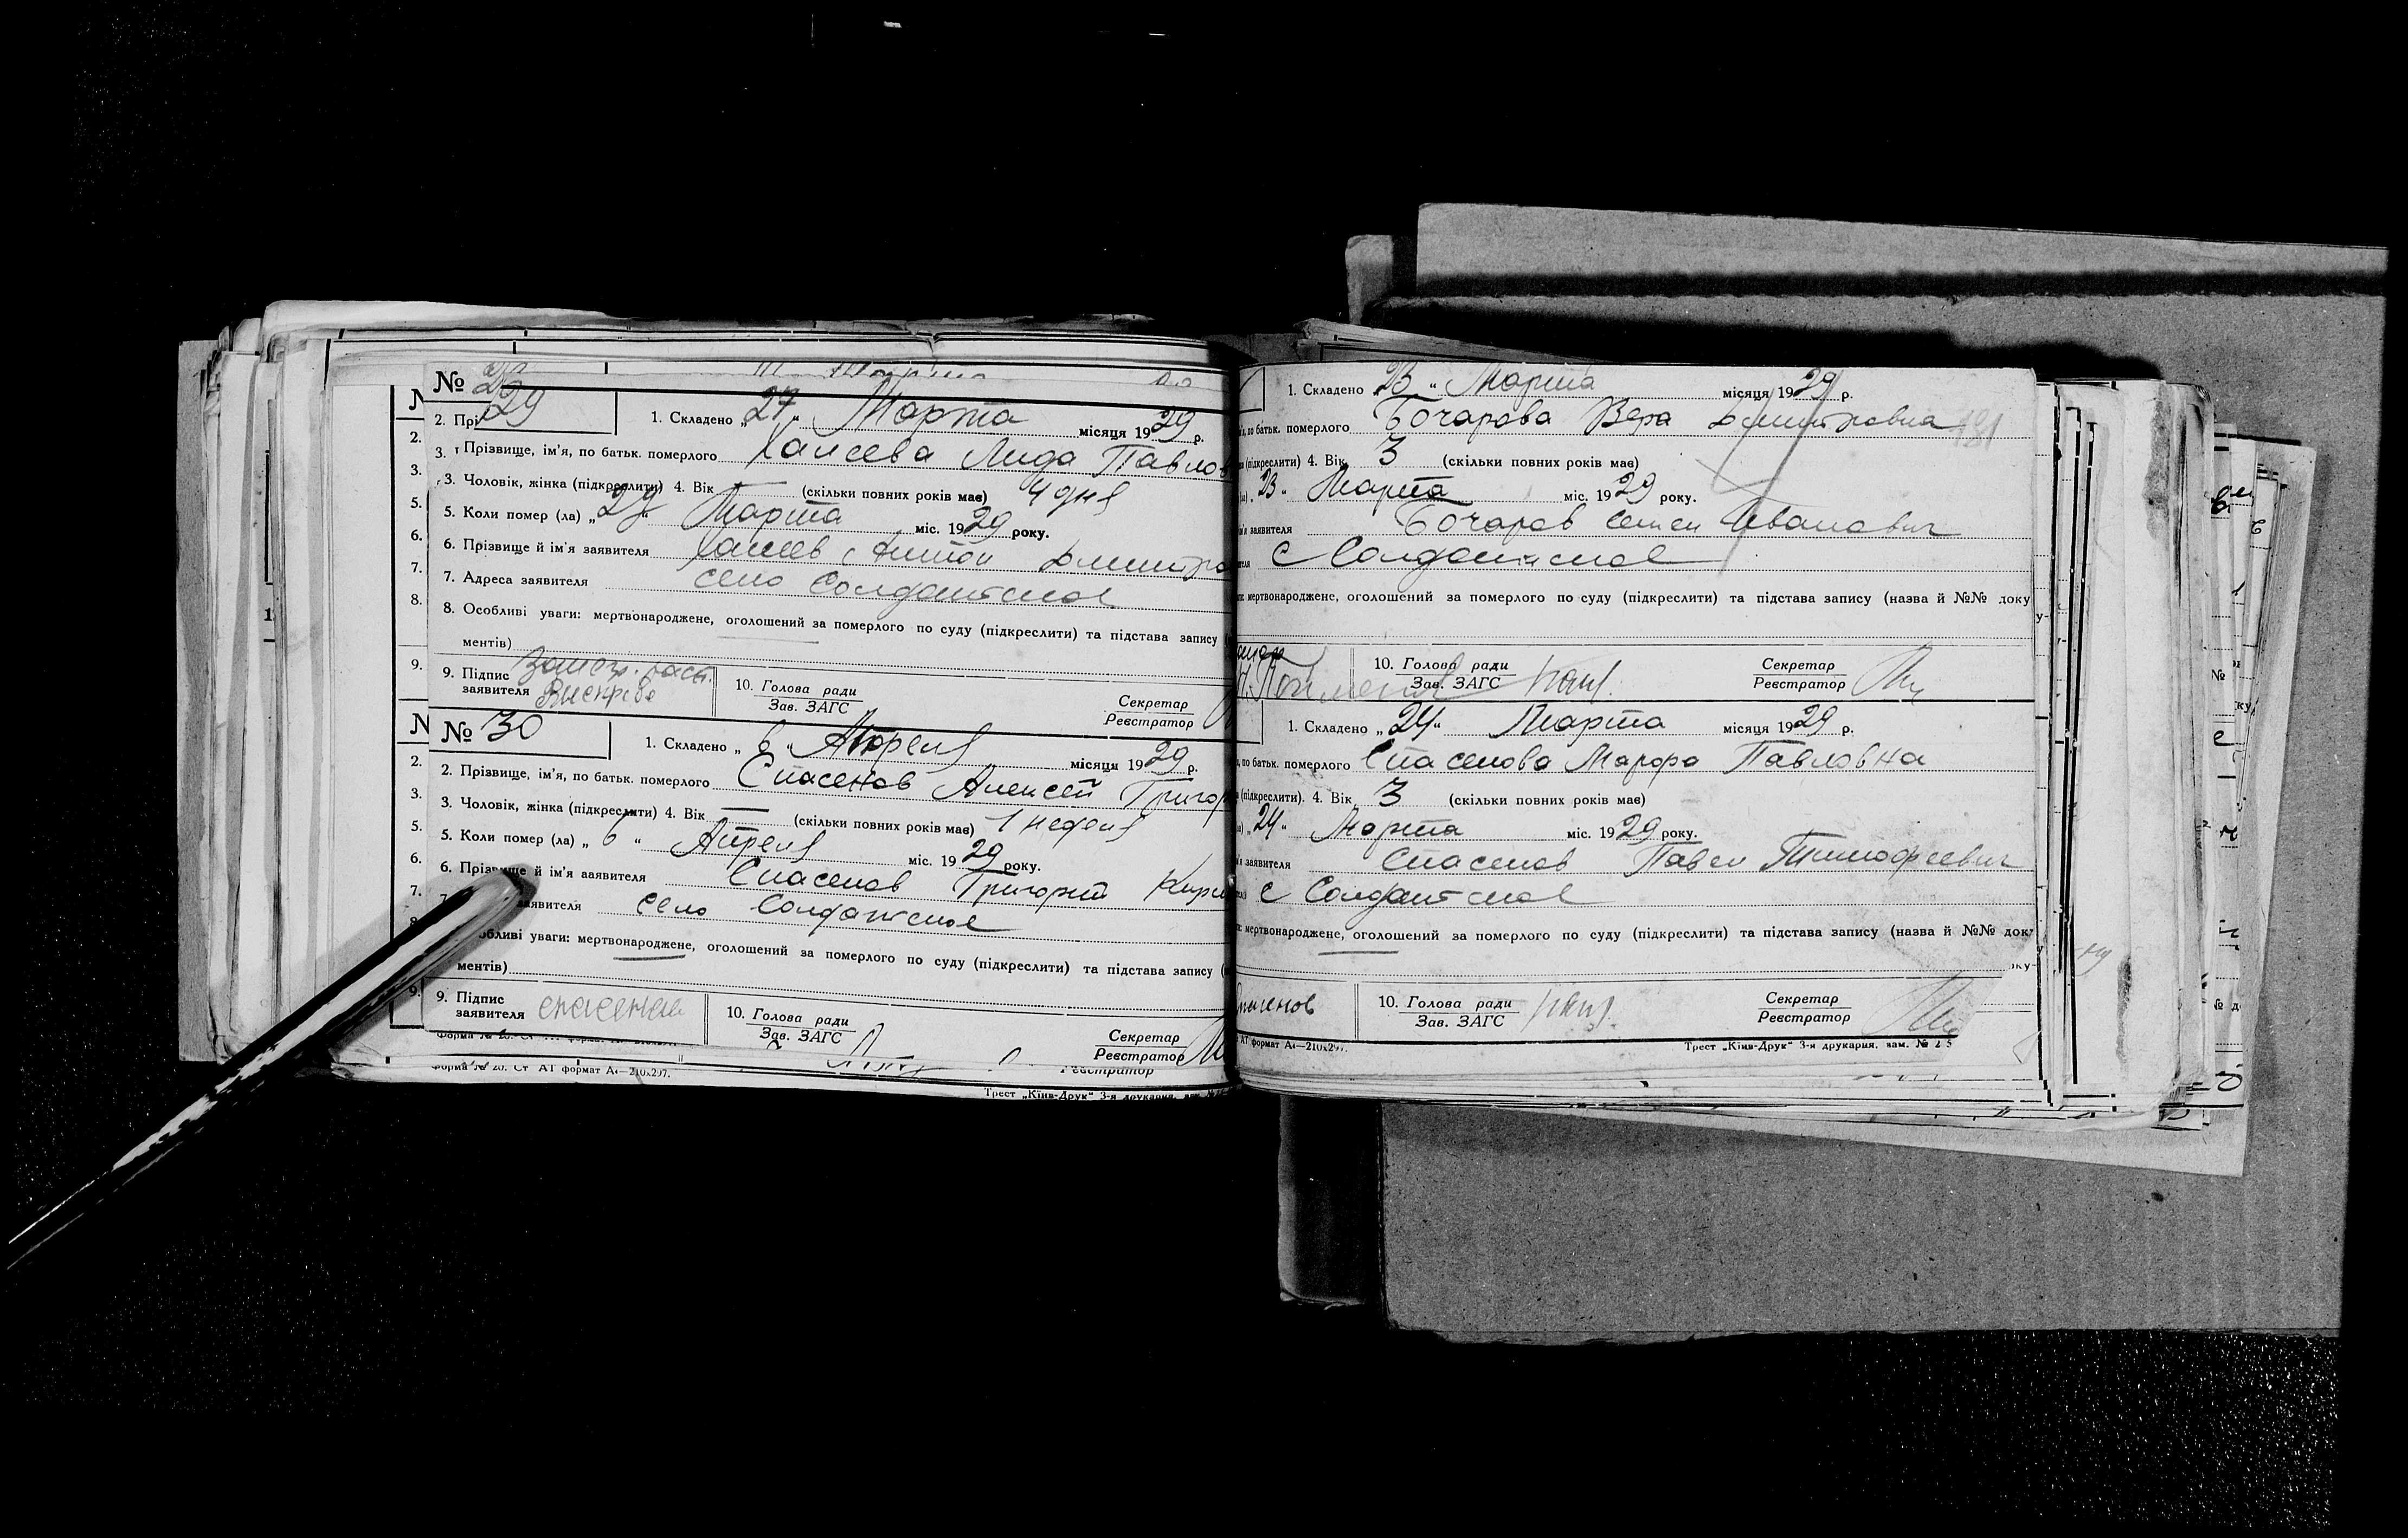 №
29
1. Складено „27“ Марта місяця 1929 р.
2. Прі
Прізвище, ім'я, по батьк. померлого Лида Павлов
3. Чоловік, жінка (підкреслити) 4. Вік — (скільки повних років має) 4 дня
5. Коли помер (ла) „27“ Марта міс. 1929 року.
6. Прізвище й ім'я заявителя Антон Дмитро
7. Адреса заявителя село Солдатское
8. Особливі уваги: мертвонароджене, оголошений за померлого по суду (підкреслити) та підстава запису (
ментів)
9. Підпис
заявителя
10. Голова ради
Зав. ЗАГС
Секретар
Реєстратор
№ 30
1. Складено „6“ Апреля місяця 1929 р.
2. Прізвище, ім'я, по батьк. померлого Спасенов Алексей Григор
3. Чоловік, жінка (підкреслити) 4. Вік — (скільки повних років має) 1 неделя
5. Коли помер (ла) „6“ Апреля міс. 1929 року.
6. Прізвище й ім'я заявителя Спасенов Григорий Кири
7. заявителя село Солдатское
обливі уваги: мертвонароджене, оголошений за померлого по суду (підкреслити) та підстава запису (
ментів)
9. Підпис
заявителя спасенов
10. Голова ради
Зав. ЗАГС
Секретар
Реєстратор
Форма № 20. Ст АТ формат А4—210х297.
Трест „Київ-Друк“ 3-я друкарня, зам. №
1. Складено „23“ Марта місяця 1929 р.
по батьк. померлого Бочарова Вера Дмитровна
191
(підкреслити) 4. Вік 3 (скільки повних років має)
23“ Марта міс. 1929 року.
м'я заявителя Бочаров Семен Иванович
с Солдатское
мертвонароджене, оголошений за померлого по суду (підкреслити) та підстава запису (назва й №№ доку
10. Голова ради
Зав. ЗАГС
Секретар
Реєстратор
1. Складено „24“ Марта місяця 1929 р.
по батьк. померлого Спасенова Марфа Павловна
(підкреслити). 4. Вік 3 (скільки повних років має)
24“ Марта міс. 1929 року.
заявителя Спасенов Павел Тимофеевич
с Солдатское
мертвонароджене, оголошений за померлого по суду (підкреслити) та підстава запису (назва й №№ док
10. Голова ради
Зав. ЗАГС
Секретар
Реєстратор
АТ формат А4—210х297.
Трест „Київ-Друк“ 3-я друкарня, зам. №